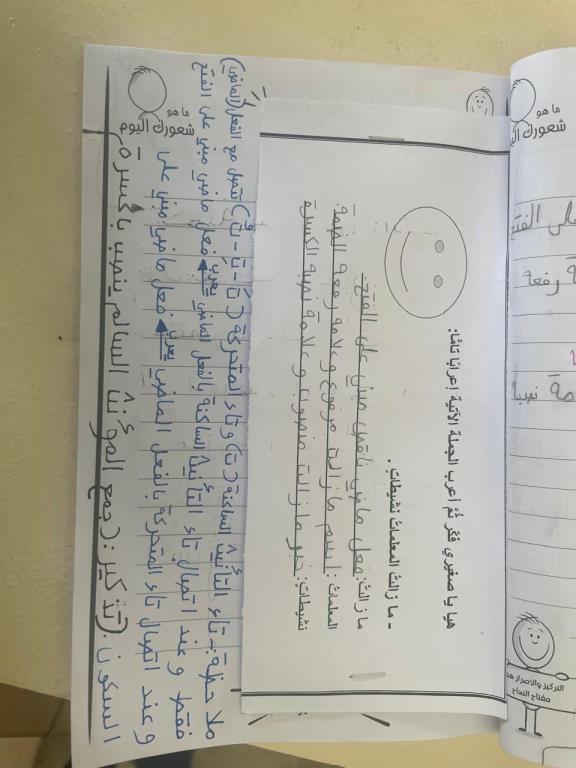 هيا يا صغيري فكر ثم أعرب الجملة الآتية إعرابًا تامًا:
- ما زالت المعلمات نشيطاتٍ.
ما زالت: فعل ماضي ناقص مبني على الفتح.
المعلمات: اسم ما زالت مرفوع وعلامة رفعه الضمة.
نشيطاتٍ: خبر ما زالت منصوب وعلامة نصبه الكسرة
ملاحظة:- تاء التأنيث الساكنة (تْ) وتاء المتحركة (تَ - تِ - تُ) تتصل مع الفعل (الماضي)
فقط وعند اتصال تاء التأنيث الساكنة بالفعل الماضي يعرب فعل ماضي مبني على الفتح
وعند اتصال تاء المتحركة بالفعل الماضي يعرب فعل ماضي مبني على
السكون. (تذكير: (جمع المؤنث السالم ينصب بالكسرة)
ما هو
شعورك اليوم
ما هو
شعورك اليوم
على الفتح
رفعة
نصبها
التركيز والاصرار هما
مفتاح النجاح